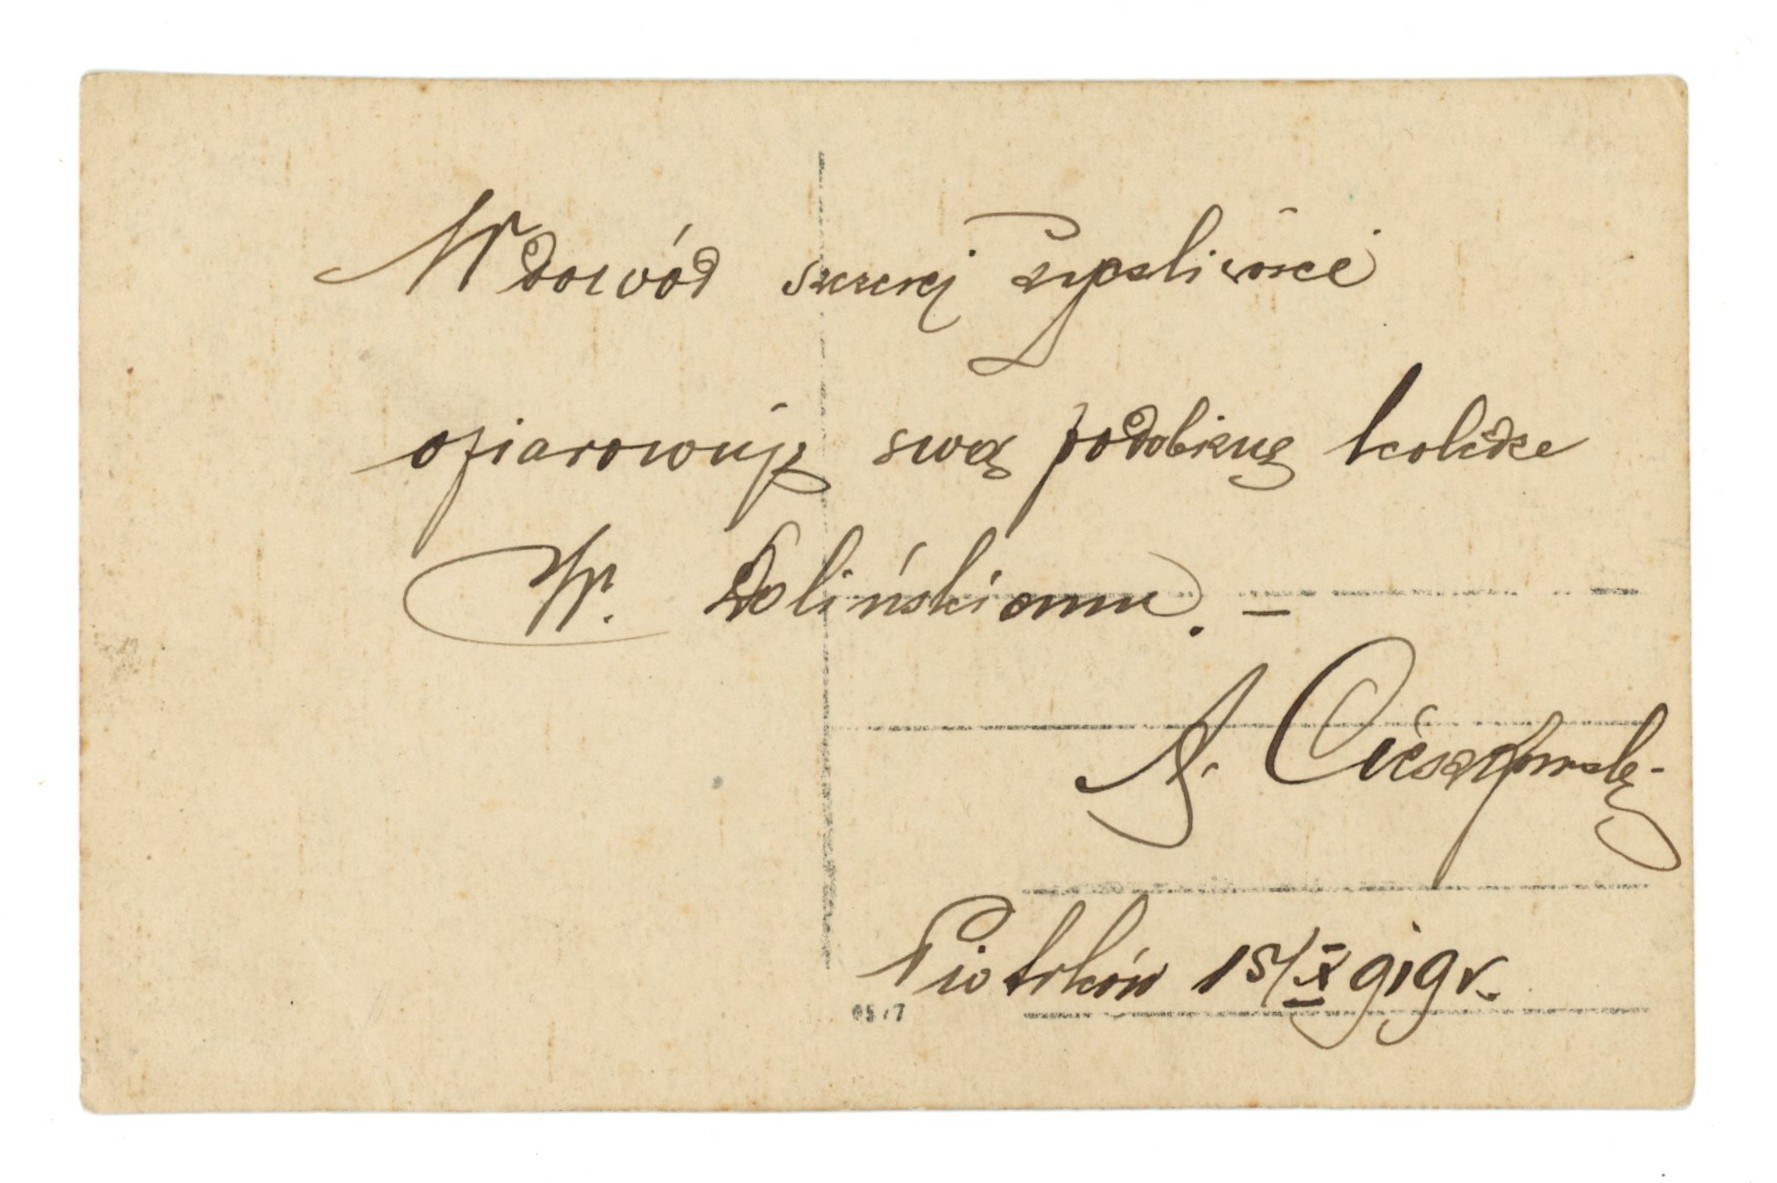 W dowód szczerej życzliwości
ofiarowuję swą podobiznę koledze
W. Dolińskiemu. –
A.
Piotrków 15/X 919 r.